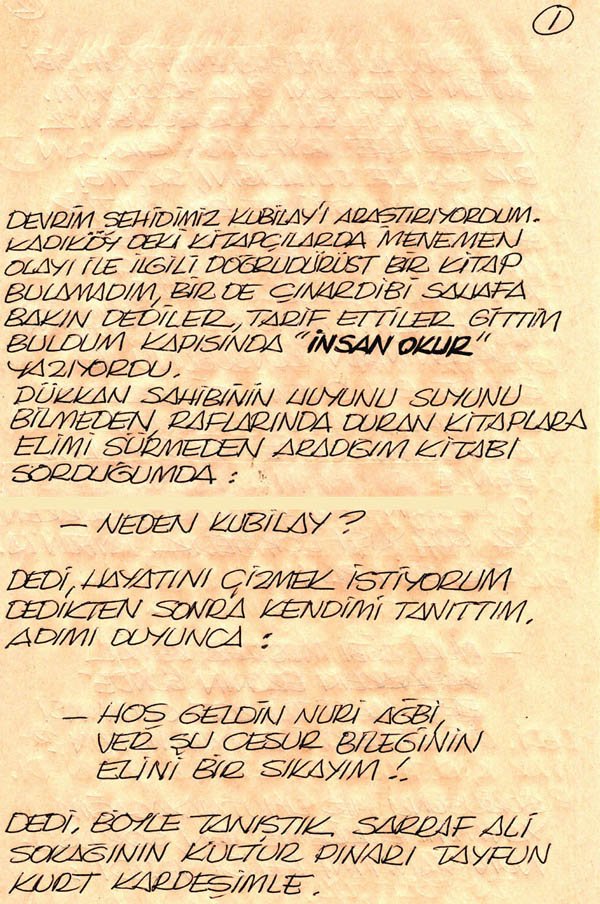 1
DEVRİM ŞEHİDİMİZ KUBİLAY'I ARAŞTIRIYORDUM.
KADIKÖY DEKİ KİTAPÇILARDA MENEMEN
OLAYI İLE İLGİLİ DOĞRUDÜRÜST BİR KİTAP
BULAMADIM, BİR DE ÇINARDİBİ SAHAFA
BAKIN DEDİLER, TARİF ETTİLER GİTTİM
BULDUM KAPISINDA "İNSAN OKUR"
YAZIYORDU.
DÜKKAN SAHİBİNİN HUYUNU SUYUNU
BİLMEDEN, RAFLARINDA DURAN KİTAPLARA
ELİMİ SÜRMEDEN ARADIĞIM KİTABI
SORDUĞUMDA :
— NEDEN KUBİLAY ?
DEDİ, HAYATINI ÇİZMEK İSTİYORUM
DEDİKTEN SONRA KENDİMİ TANITTIM,
ADIMI DUYUNCA :
— HOŞ GELDİN NURİ AĞBİ,
VER ŞU CESUR BİLEĞİNİN
ELİNİ BİR SIKAYIM !..
DEDİ, BÖYLE TANIŞTIK, SARRAF ALİ
SOKAĞININ KÜLTÜR PINARI TAYFUN
KURT KARDEŞİMLE.